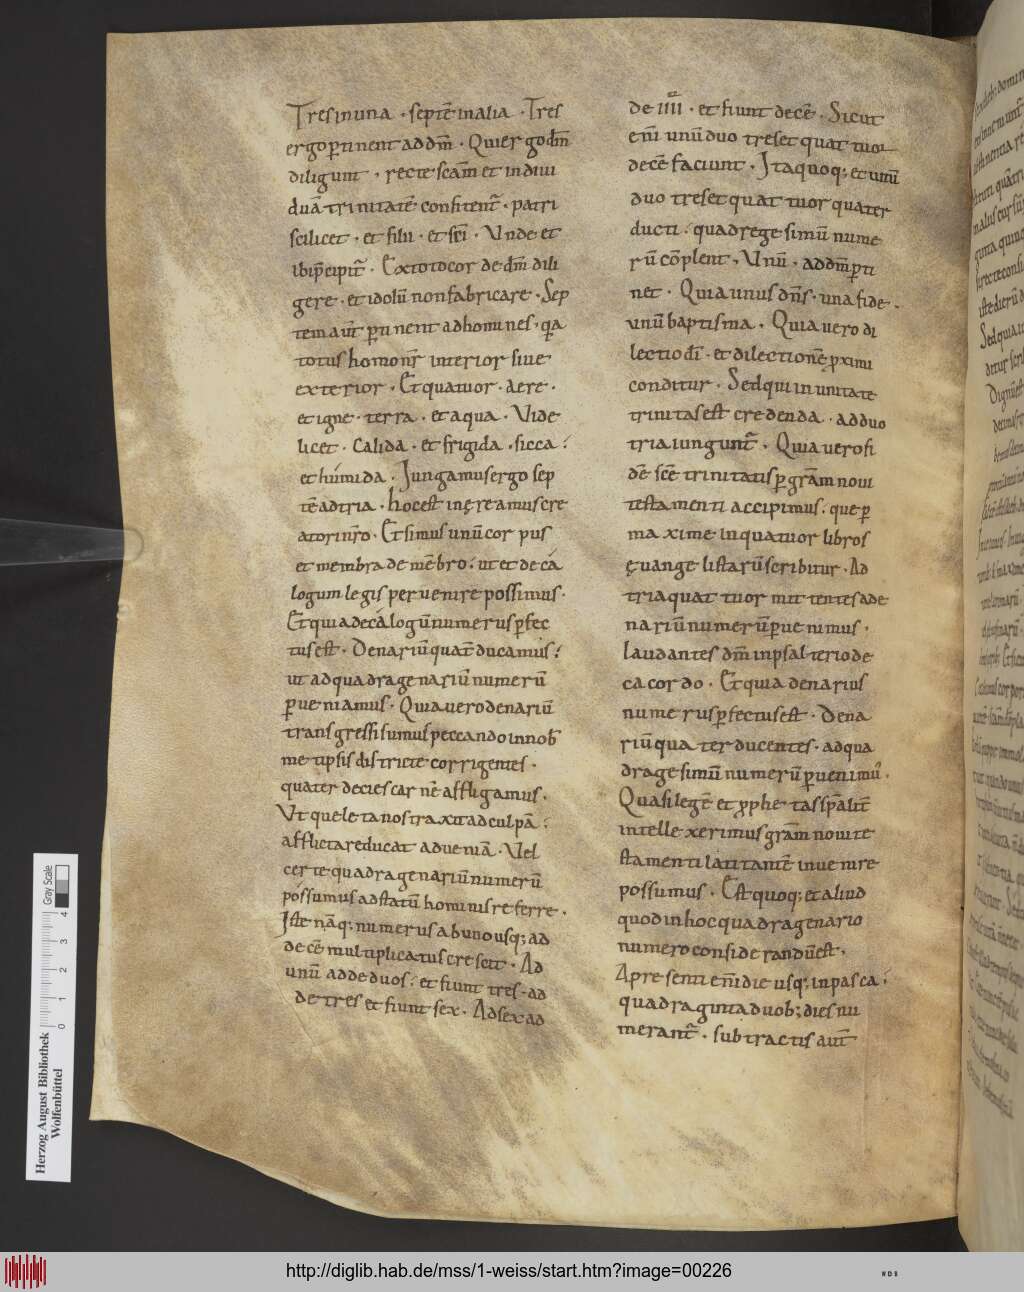 Tres in una · septē in alia · Tres
ergo ꝑtinent ad dm̄ · Qui ergo dm̄
diligunt · recte scām et indiui
duā trinitatē confitent᷑ · patri
scilicet · et filii · et sp̄i · Unde et
ibi p̄cipit᷑ · Ex toto corde dm̄ dili
gere · et idolū non fabricare · Sep
tem aut̄ ꝑtinent ad homines · q̄a
totus homo nr̄ interior siue
exterior · Et quatuor · aere ·
et igne · terra · et aqua · Vide
licet · calida · et frigida · sicca ·
et húmida · Jungamus ergo sep
tē ad tria · hoc est in ęre amus cre
atori nr̄o · Et simus unū corpus
et membra de mēbro · ut et decá
logum legis peruenire possimus ·
Et quia decálogū numerus ꝑfec
tus est · Denariū quat᷑ ducamus ·
ut ad quadragenariū numerū
ꝑueniamus · Quia uero denariū
transgressi sumus peccando in nob̄
metipsis districte corrigentes ·
quater decies carnē affligamus ·
Ut que leta nostra xit ad culpā ·
afflicta reducat ad ueniā · Vel
certe quadragenariū numerū
possumus ad statū hominis referre ·
Iste nāq; numerus ab uno usq; ad
decē multiplicatus crescit · Ad
unū adde duos · et fiunt tres · ad
de tres et fiunt sex · Ad sex ad
de iiii · et fiunt decē · Sicut
eni᷑ unū duo tres et quattuor
decē faciunt · Itaquoq; et unū
duo tres et quattuor quater
ducti · quadregesimū nume
rū cōplent · Unū · ad dm̄ ꝑti
net · Quia unus dn̄s · una fide ·
unū baptisma · Quia uero di
lectio dī · et dilectionē ꝓximi
conditur · Sed qui in unitate
trinitas est credenda · ad duo
tria iungunt᷑ · Quia uero fi
dē scē trinitatis ꝑ grām noui
testamenti accipimus · que ꝑ
maxime in quatuor libros
ęuangelistarū scribitur · Ad
tria quattuor mittentes ade
nariū numerū ꝑuenimus ·
laudantes dm̄ in psalterio de
cacordo · Et quia denarius
numerus ꝑfectus est · Dena
riū quater ducentes · ad qua
dragesimū numerū ꝑuenimus ·
Quasi legē et ꝓphetas sp̄alit̄
intellexerimus grām noui te
stamenti latitantē inuenire
possumus · Est quoq; et aliud
quod in hoc quadragenario
numero considerandū est ·
A presenti eni᷑ die usq; in pasca ·
quadraginta duob; dies nu
merant᷑ · subtractis aut̄
Herzog August Bibliothek
Wolfenbüttel
0 1 2 3 4
Gray Scale
http://diglib.hab.de/mss/1-weiss/start.htm?image=00226